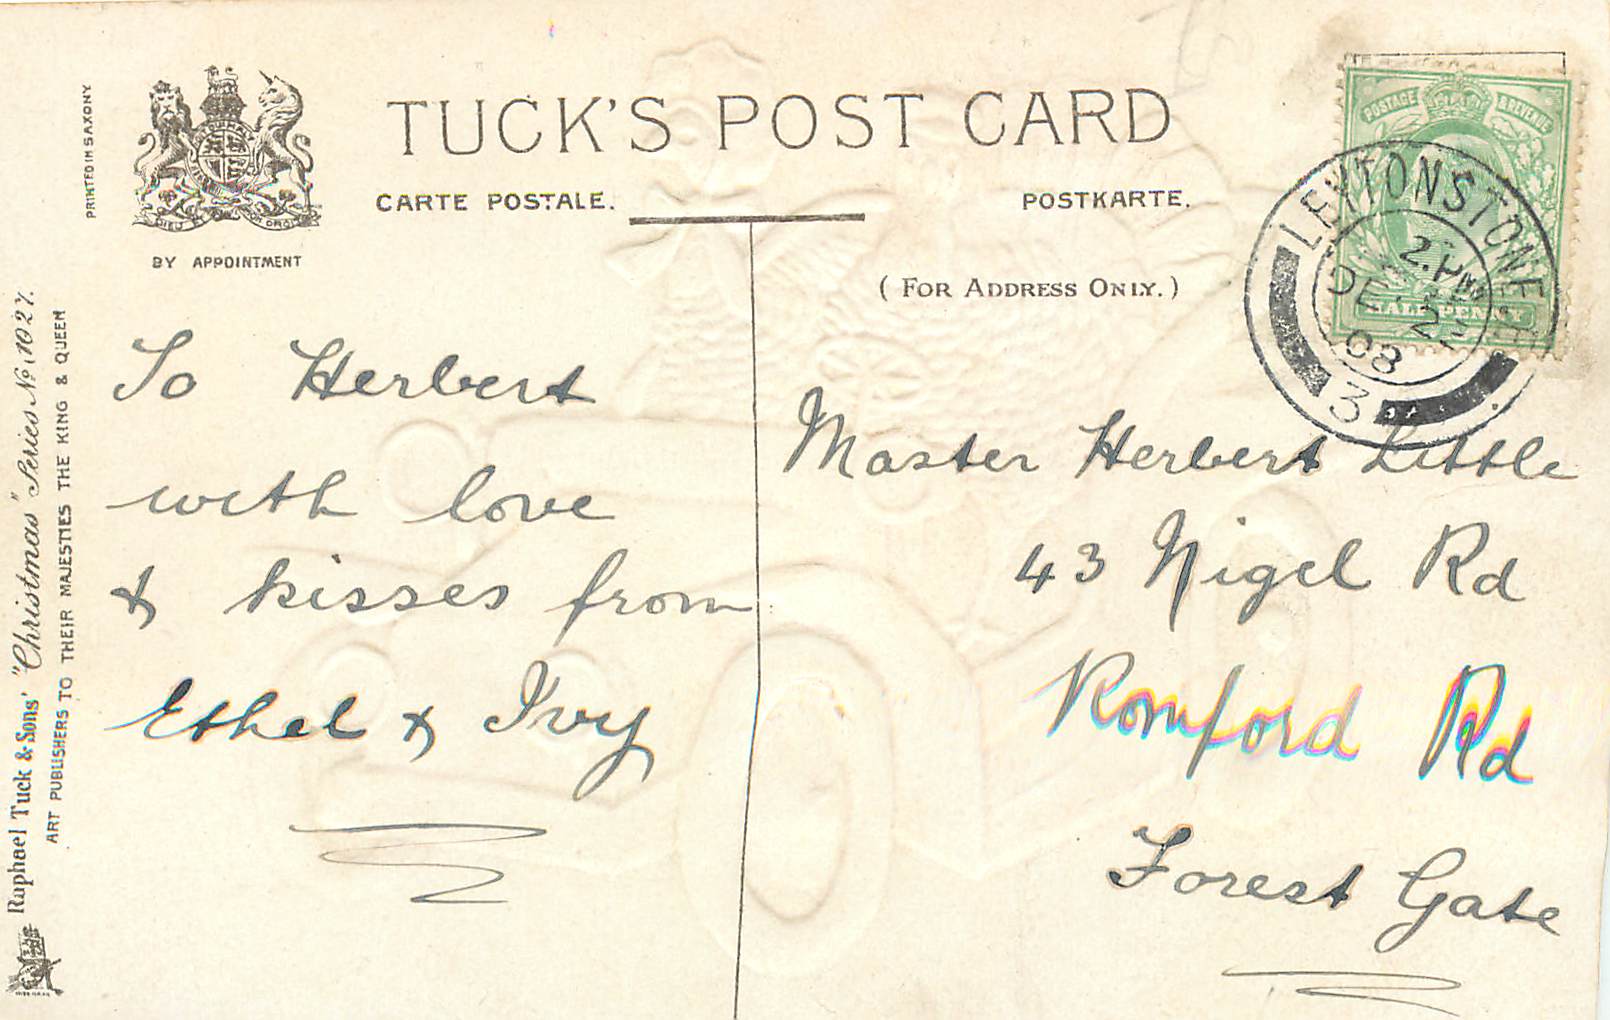 PRINTED IN SAXONY
DIEU ET MON DROIT
BY APPOINTMENT
TUCK'S POST CARD
CARTE POSTALE.
POSTKARTE.
(FOR ADDRESS ONLY.)
POSTAGE & REVENUE
HALFPENNY
LEYTONSTONE
2.PM
DE 22
08
3
Raphael Tuck & Sons' "Christmas" Series No. 1027.
ART PUBLISHERS TO THEIR MAJESTIES THE KING & QUEEN
To Herbert
with love
& kisses from
Ethel & Ivy
Master Herbert Little
43 Nigel Rd
Romford Rd
Forest Gate